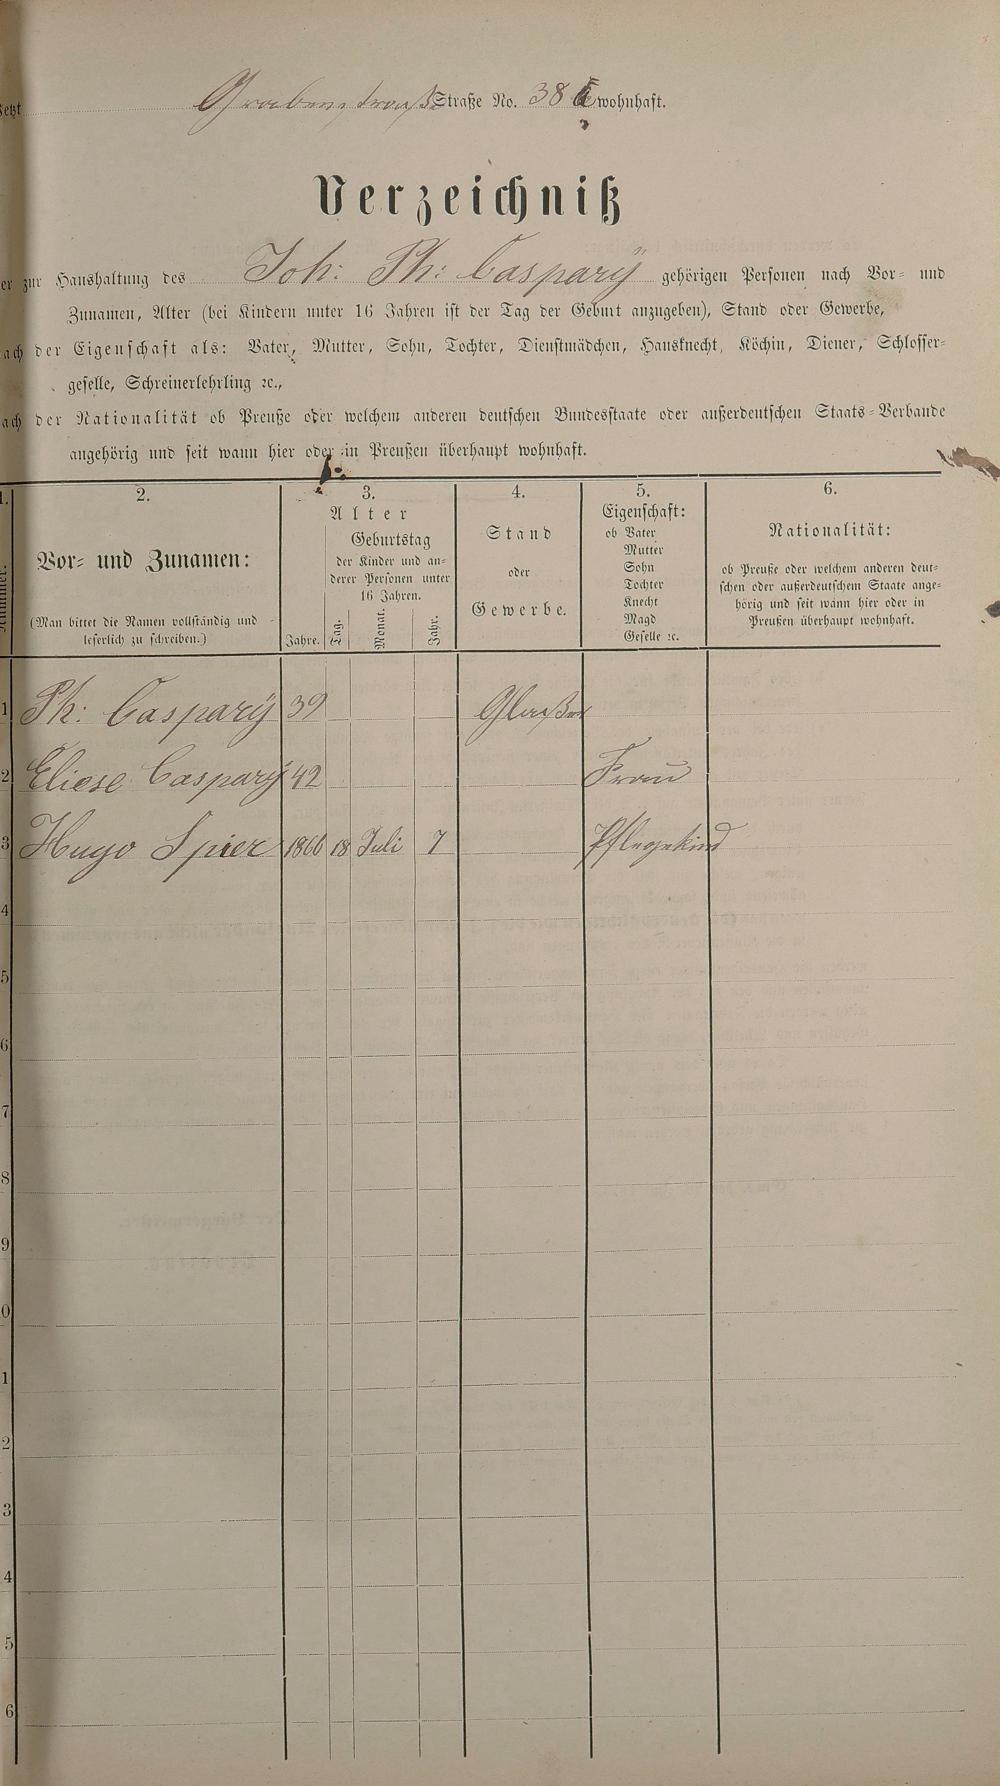 jetzt Grabenstraß Straße No. 38 wohnhaft.
Verzeichniß
er zur Haushaltung des Joh: Ph: Caspary gehörigen Personen nach Vor- und
Zunamen, Alter (bei Kindern unter 16 Jahren ist der Tag der Geburt anzugeben), Stand oder Gewerbe,
ach der Eigenschaft als: Vater, Mutter, Sohn, Tochter, Dienstmädchen, Hausknecht, Köchin, Diener, Schlosser-
geselle, Schreinerlehrling ꝛc.,
ach der Nationalität ob Preuße oder welchem anderen deutschen Bundesstaate oder außerdeutschen Staats-Verbande
angehörig und seit wann hier oder in Preußen überhaupt wohnhaft.
1. 2. 3. 4. 5. 6.
Nummer.
Vor- und Zunamen:
(Man bittet die Namen vollständig und
leserlich zu schreiben.)
Alter
Geburtstag
der Kinder und an-
derer Personen unter
16 Jahren.
Jahre. Tag. Monat. Jahr.
Stand
oder
Gewerbe.
Eigenschaft:
ob Vater
Mutter
Sohn
Tochter
Knecht
Magd
Geselle ꝛc.
Nationalität:
ob Preuße oder welchem anderen deut-
schen oder außerdeutschem Staate ange-
hörig und seit wann hier oder in
Preußen überhaupt wohnhaft.
1 Ph: Caspary 39 Glaßer
2 Eliese Caspary 42 Frau
3 Hugo Spier 1866 18 Juli 7 Pflegekind
4
5
6
7
8
9
0
1
2
3
4
5
6